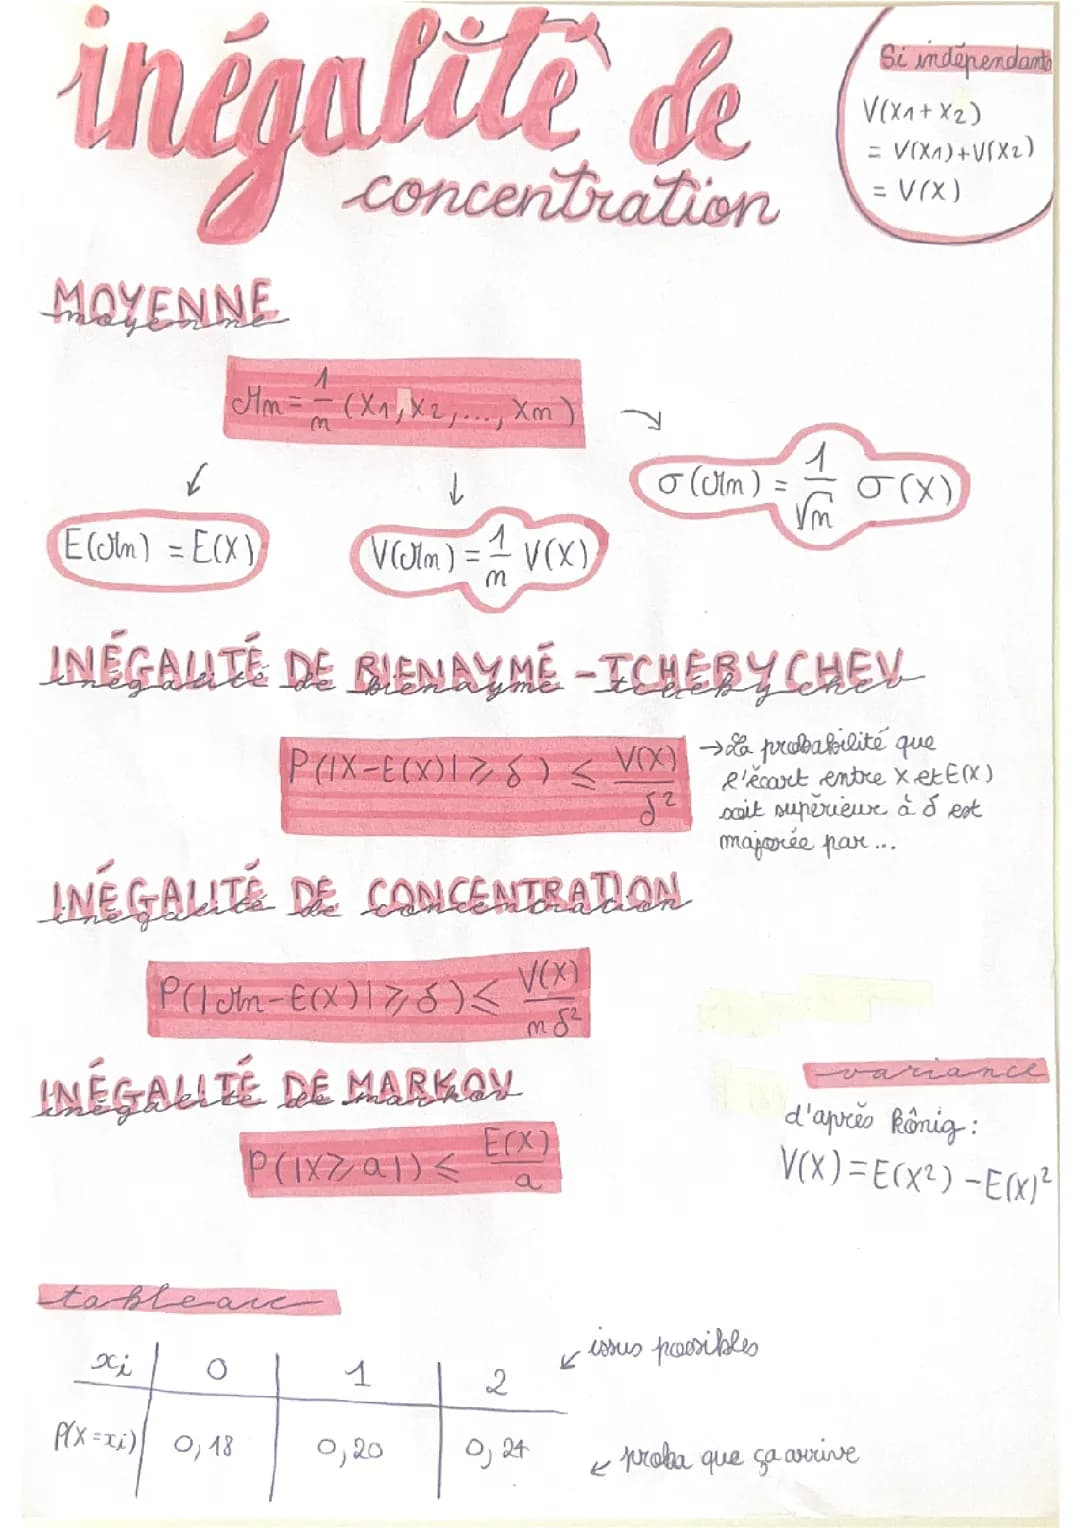 inégalité de
concentration
Si indépendants
V(X1 + X2)
= V(X1)+V(X2)
= V(X)
MOYENNE
moyenne
Mn = 1/n (X1, X2, ..., Xn)
σ(Mn) = 1/√n σ(X)
E(Mn) = E(X)
V(Mn) = 1/n V(X)
INÉGALITÉ DE BIENAYMÉ - TCHEBYCHEV
inégalité de bienaymé tchebychev
P(|X-E(X)| ≥ δ) ≤ V(X)/δ²
→ La probabilité que
l'écart entre X et E(X)
soit supérieur à δ est
majorée par ...
INÉGALITÉ DE CONCENTRATION
inégalité de concentration
P(|Mn-E(X)| ≥ δ) ≤ V(X)/nδ²
INÉGALITÉ DE MARKOV
inégalité de markov
P(|X ≥ a|) ≤ E(X)/a
variance
d'après König :
V(X) = E(X²) - E(X)²
tableau
xi 0 1 2
issus possibles
P(X=xi) 0,18 0,20 0,24
proba que ça arrive